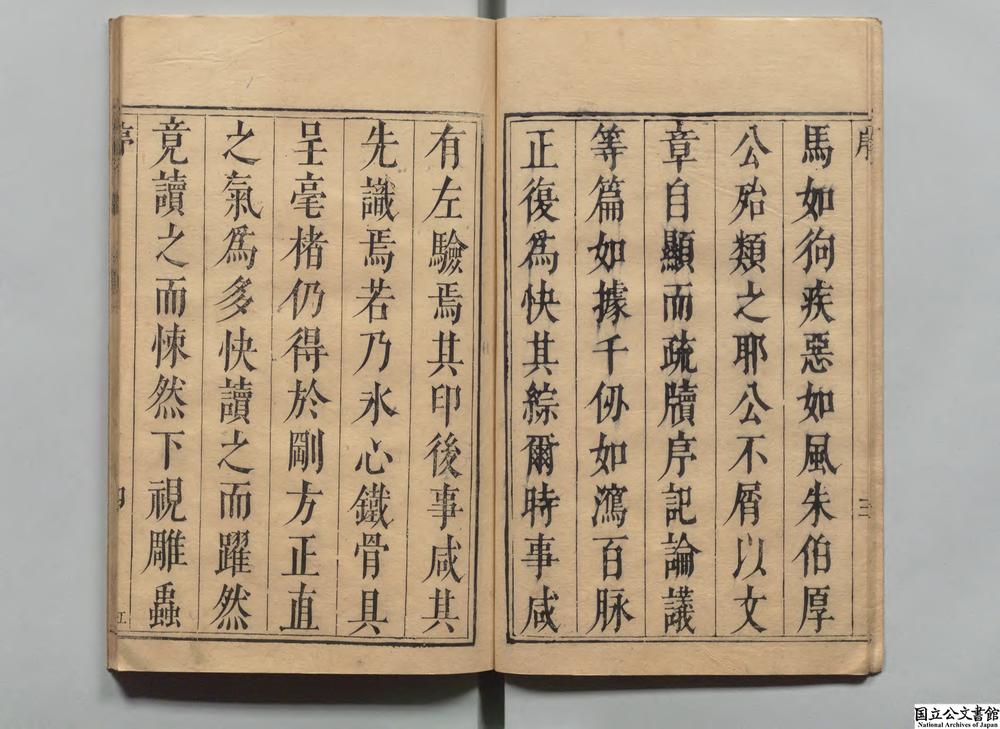 序
馬如狗疾惡如風朱伯厚
公殆類之耶公不屑以文
章自顯而疏牘序記論議
等篇如據千仞如瀉百脉
正復爲快其綜爾時事咸
三
有左驗焉其印後事咸其
先識焉若乃氷心鐵骨具
呈毫楮仍得於剛方正直
之氣爲多快讀之而躍然
竟讀之而悚然下視雕蟲
国立公文書館
National Archives of Japan